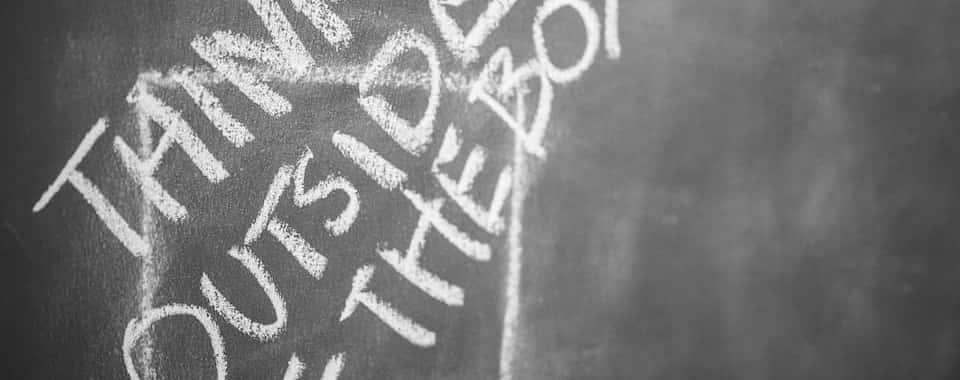 THINK
OUTSIDE
THE BOX